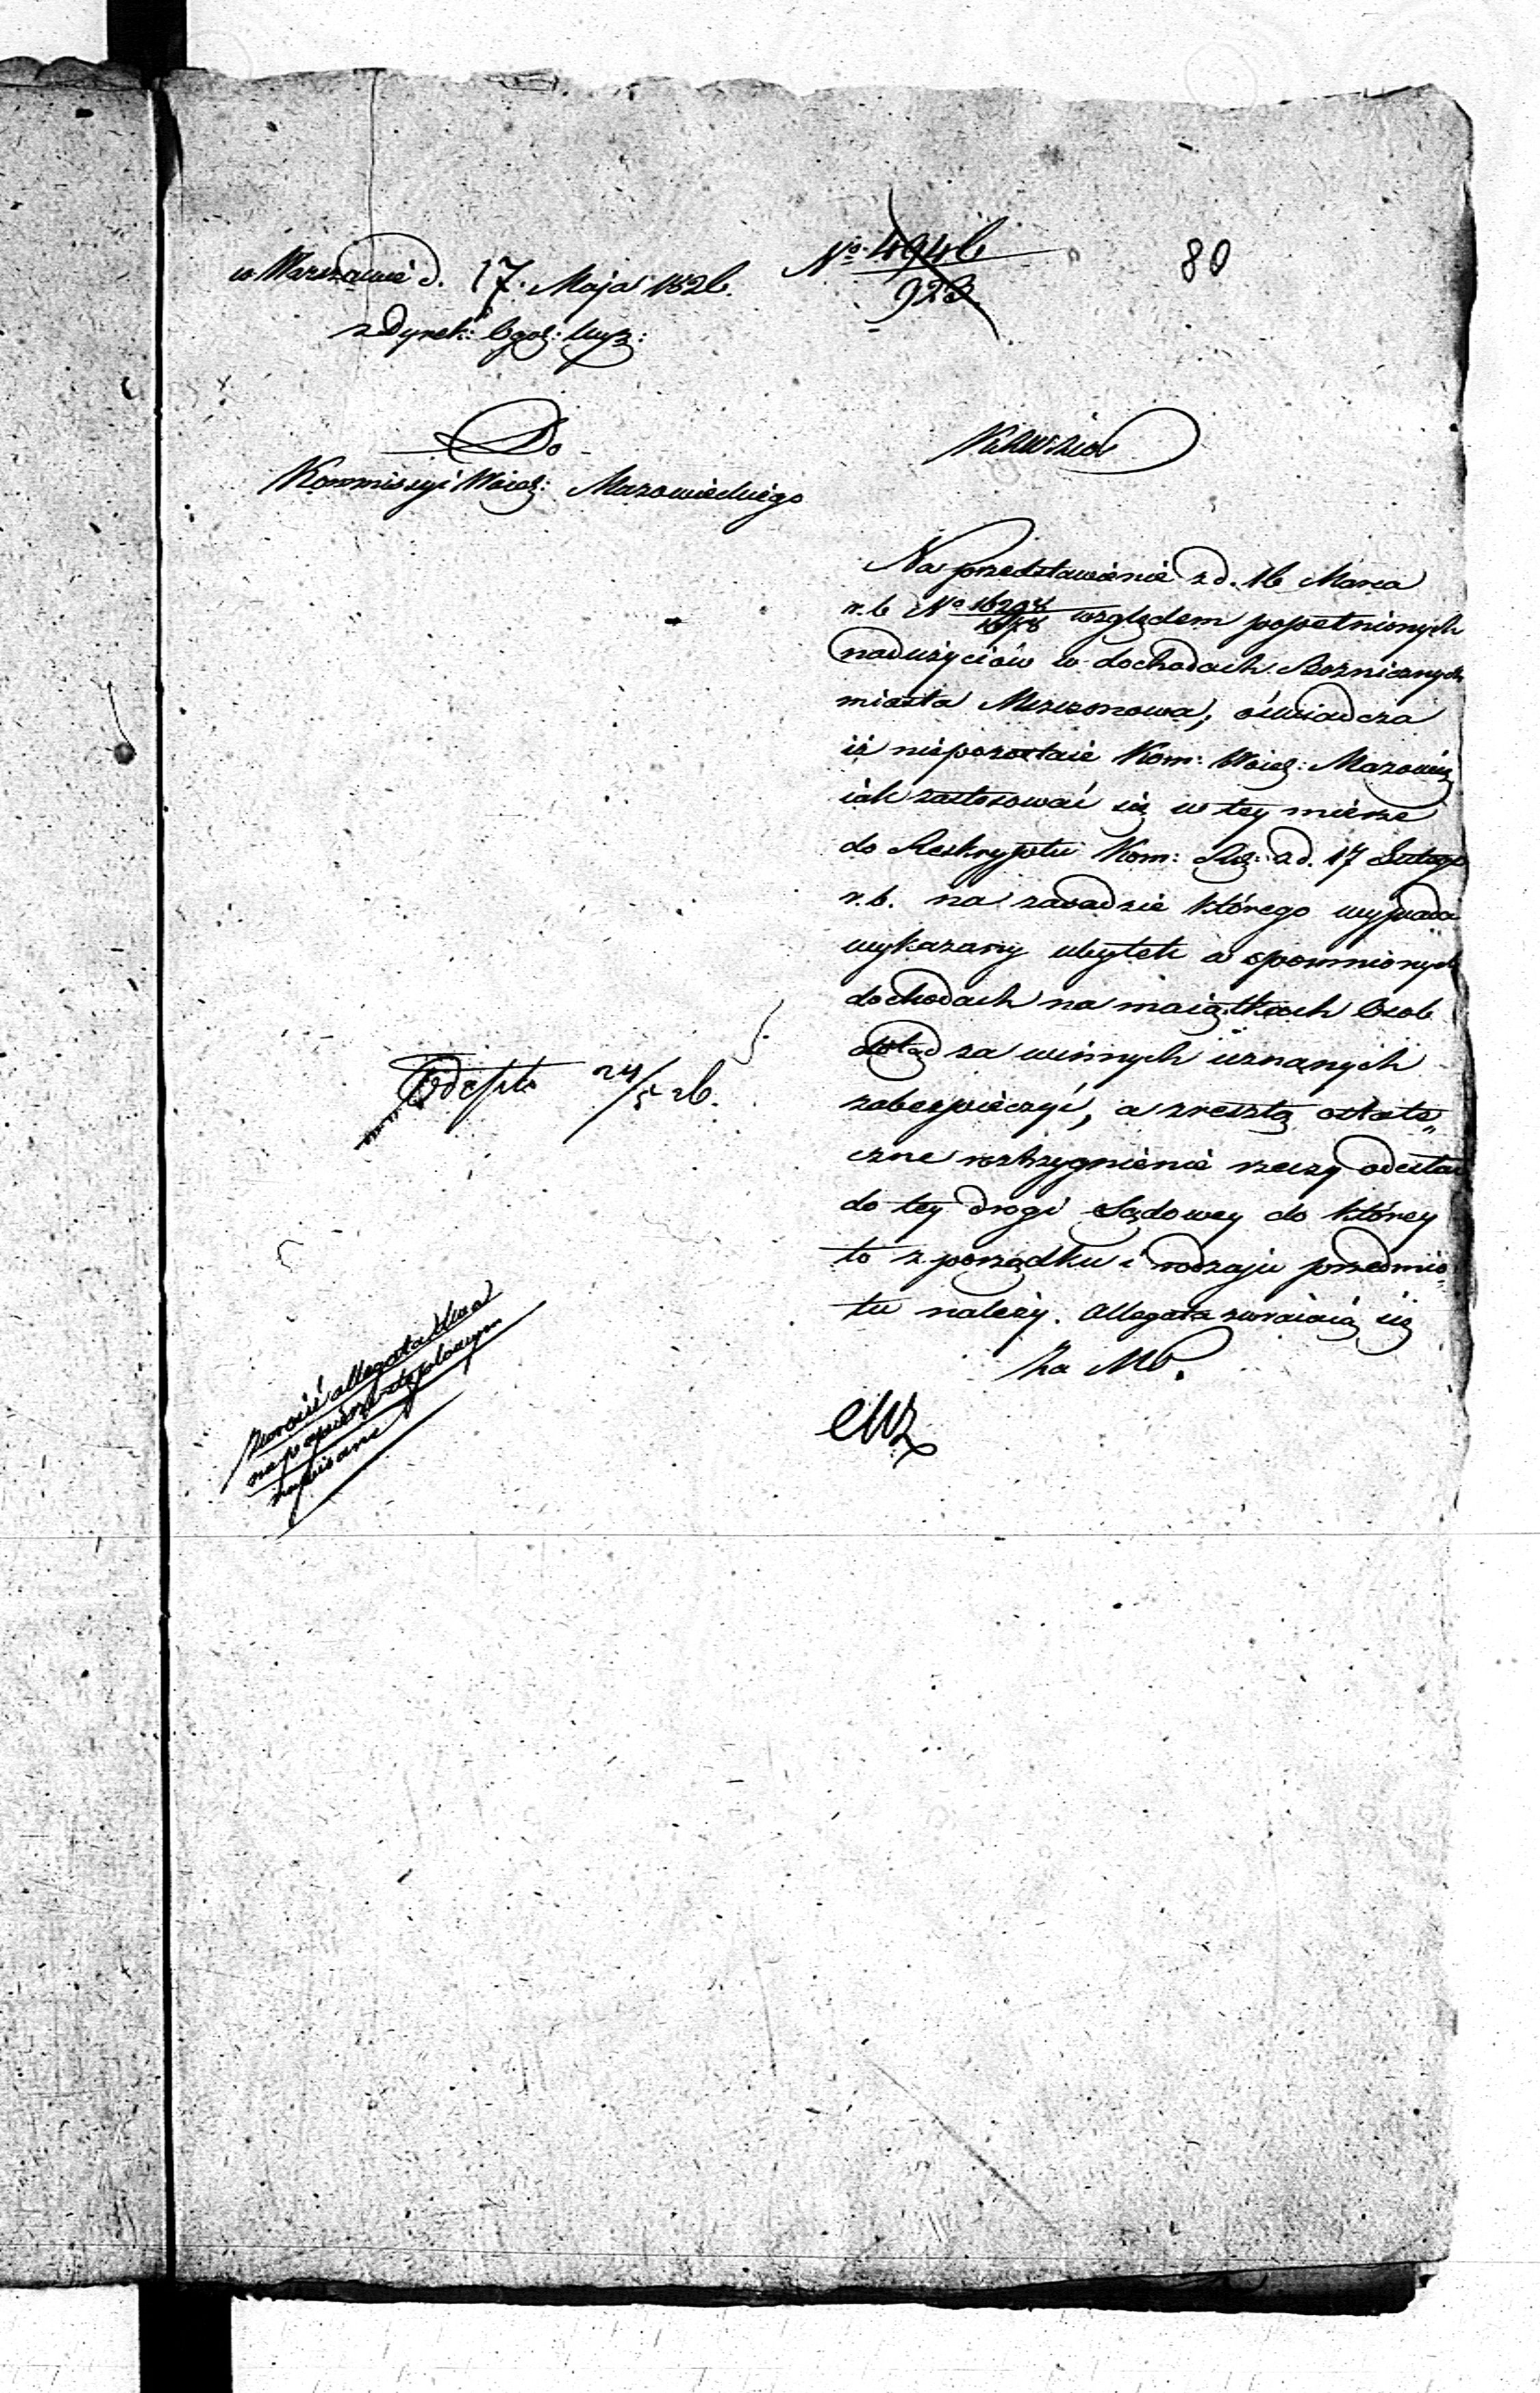 w Warszawie d. 17. Maja 1826.
z Dyrek: Ogol: Wyz:
No 4946
923
80
Do
Kommissyi Woiew: Mazowieckiego
KRWiOP
Na przedstawienie z d. 16 Marca
r. b No 16298 względem popełnionych
nadużyciów w dochodach Bożnicznych
miasta Mszczonowa, oświadcza
iż niepozostaie Kom: Woiew: Mazowiec
iak zastosować się w tey mierze
do Reskryptu Kom: Rz: z d. 17 Lutego
r. b. na zasadzie którego wypada
wykazany ubytek w spomnionych
dochodach na maiątkach Osob
dotąd za winnych uznanych
zabezpieczyć, a zresztą ostate„
czne rozstrzygnienie rzeczy odesłać
do tey drogi Sądowey do którey
to z porządku i rodzaju przedmio„
tu należy. Allegata zwracaią się
Za MP.
Odesło 24/5 26.
zwrócić allegata dwa
na papierze stęplowym
napisane